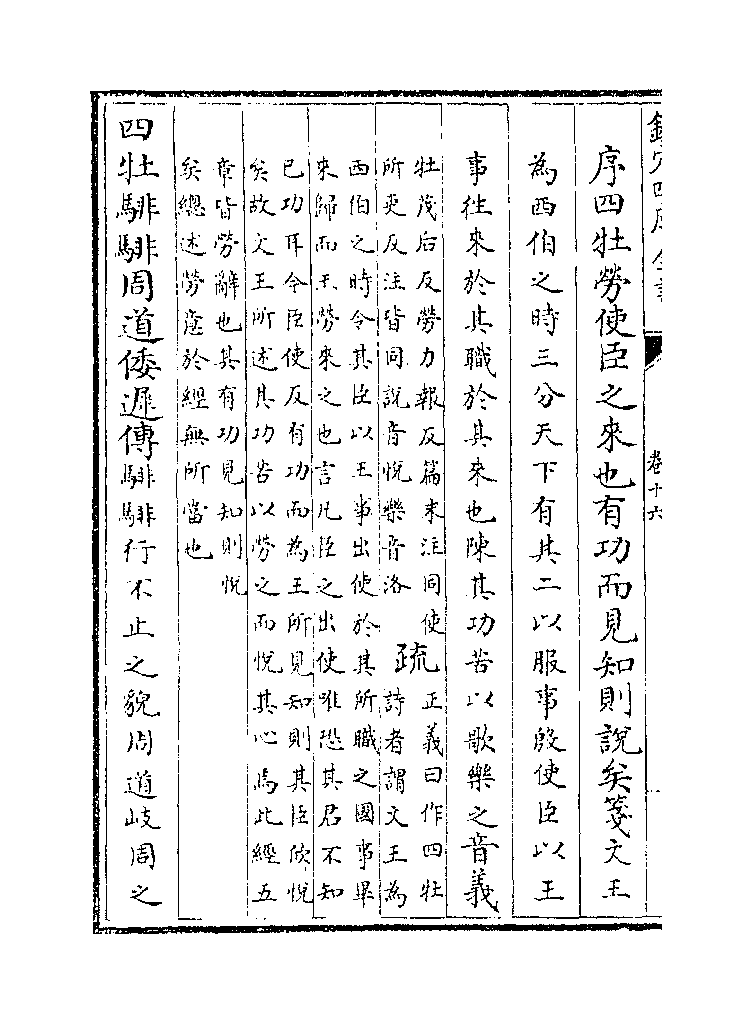 欽定四庫全書 卷十六
序四牡勞使臣之來也有功而見知則說矣箋文王
為西伯之時三分天下有其二以服事殷使臣以王
事往來於其職於其來也陳其功苦以歌樂之音義
牡茂后反勞力報反篇末注同使
所吏反注皆同說音悅樂音洛
疏
正義曰作四牡
詩者謂文王為
西伯之時令其臣以王事出使於其所職之國事畢
來歸而王勞來之也言凡臣之出使唯恐其君不知
已功耳今臣使反有功而為王所見知則其臣欣悅
矣故文王所述其功苦以勞之而悅其心焉此經五
章皆勞辭也其有功見知則悅
矣總述勞意於經無所當也
四牡騑騑周道倭遲傳騑騑行不止之貌周道岐周之